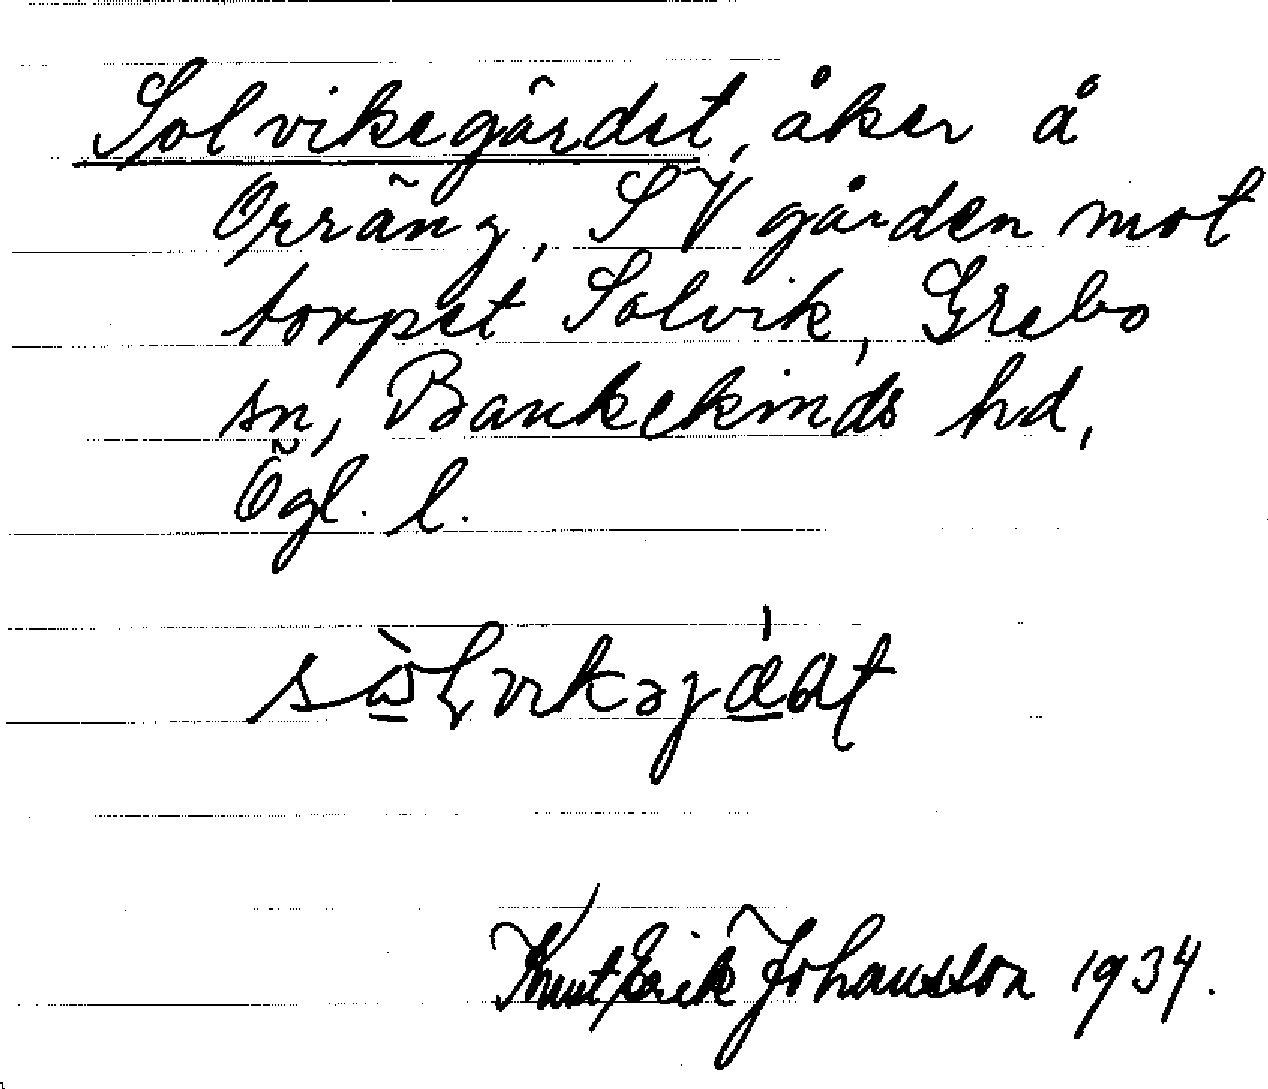 Solvikegärdet, åker å
Orräng, SV gården mot
torpet Solvik, Grebo
sn, Bankekinds hd,
Ögl. l.
Knut Erik Johansson 1934.